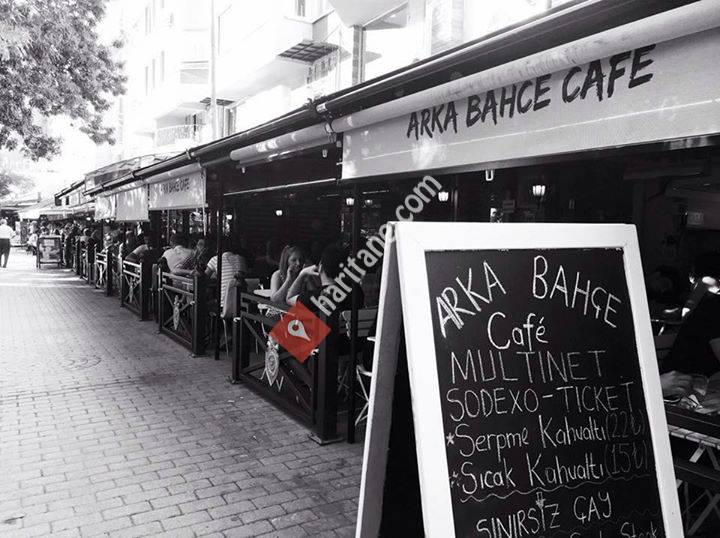 ARKA BAHCE CAFE
ARKA BAHCE CAFE
haritane.com
ARKA BAHÇE
Café
MULTINET
SODEXO-TICKET
*Serpme Kahvaltı(22₺)
*Sıcak Kahvaltı(15₺)
SINIRSIZ ÇAY